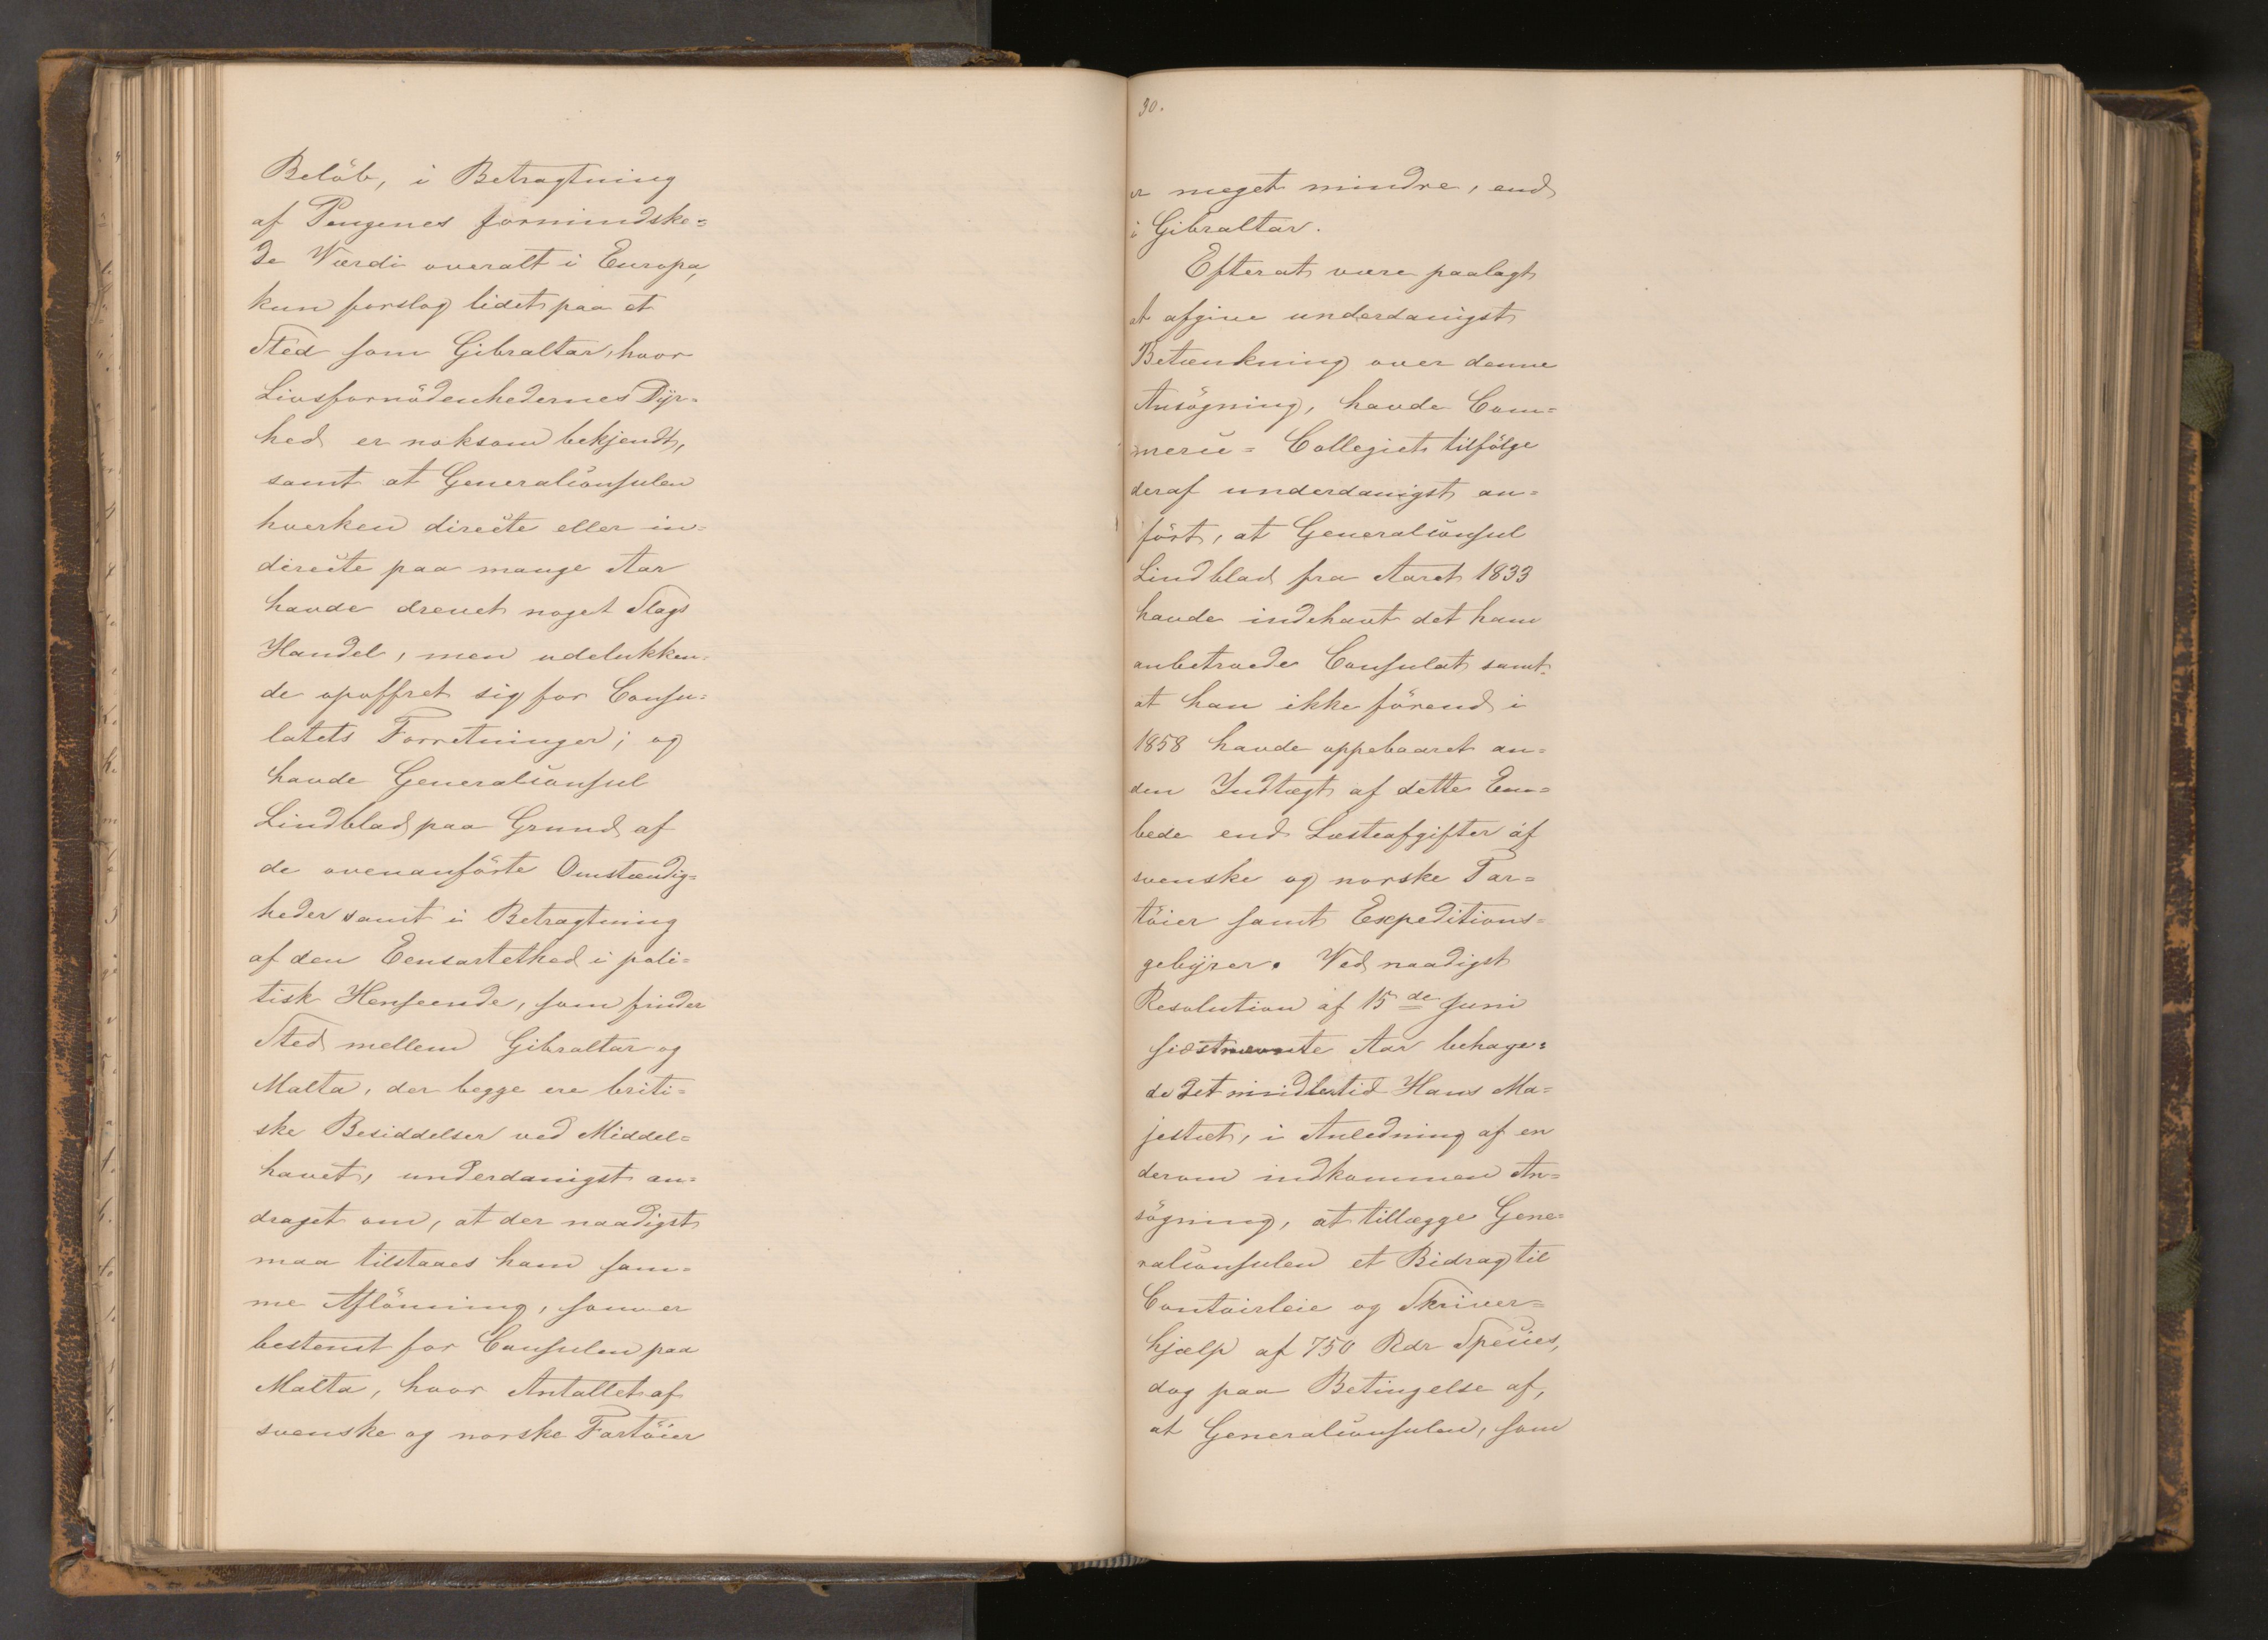 Belöb, i Betragtning
af Pengenes formindske=
de Værdi overalt i Europa,
kun forslog lidet paa et
Sted som Gibraltar, hvor
Livsfornödenhedernes Dÿr=
hed er noksom bekjendt,
samt at Generalconsulen
hverken directe eller in=
directe paa mange Aar
havde drevet noget Slags
Handel, men udelukken=
de opoffret sig for Consu=
latets Forretninger; og
havde Generalconsul
Lindblad paa Grund af
de ovenanförte Omstændig=
heder samt i Betragtning
af den Eensartethed i poli=
tisk Henseende, som finder
Sted mellem Gibraltar og
Malta, der begge ere briti=
ske Besiddelser ved Middel=
havet, underdanigst an=
draget om, at der naadigst
maa tilstaaes ham sam=
me Aflönning, som er
bestemt for Consulen paa
Malta, hvor Antallet af
svenske og norske Fartöier
30.
er meget mindre, end
i Gibraltar.
Efter at være paalagt
at afgive underdanigst
Betænkning over denne
Ansögning, havde Com=
merce=Collegiet tilfölge
deraf underdanigst an=
fört, at Generalconsul
Lindblad fra Aaret 1833
havde indehavt det ham
anbetroede Consulat samt
at han ikke förend i
1858 havde oppebaaret an=
den Indtægt af dette Em=
bede end Læsteafgifter af
svenske og norske Far=
töier samt Expeditions=
gebÿrer. Ved naadigst
Resolution af 15de Juni
sidstnævnte Aar behage=
de det imidlertid Hans Ma=
jestæt, i Anledning af en
derom indkommen An=
sögning, at tillægge Gene=
ralconsulen et Bidrag til
Contoirleie og Skriver=
hjælp af 750 Rdr Species,
dog paa Betingelse af,
at Generalconsulen, som